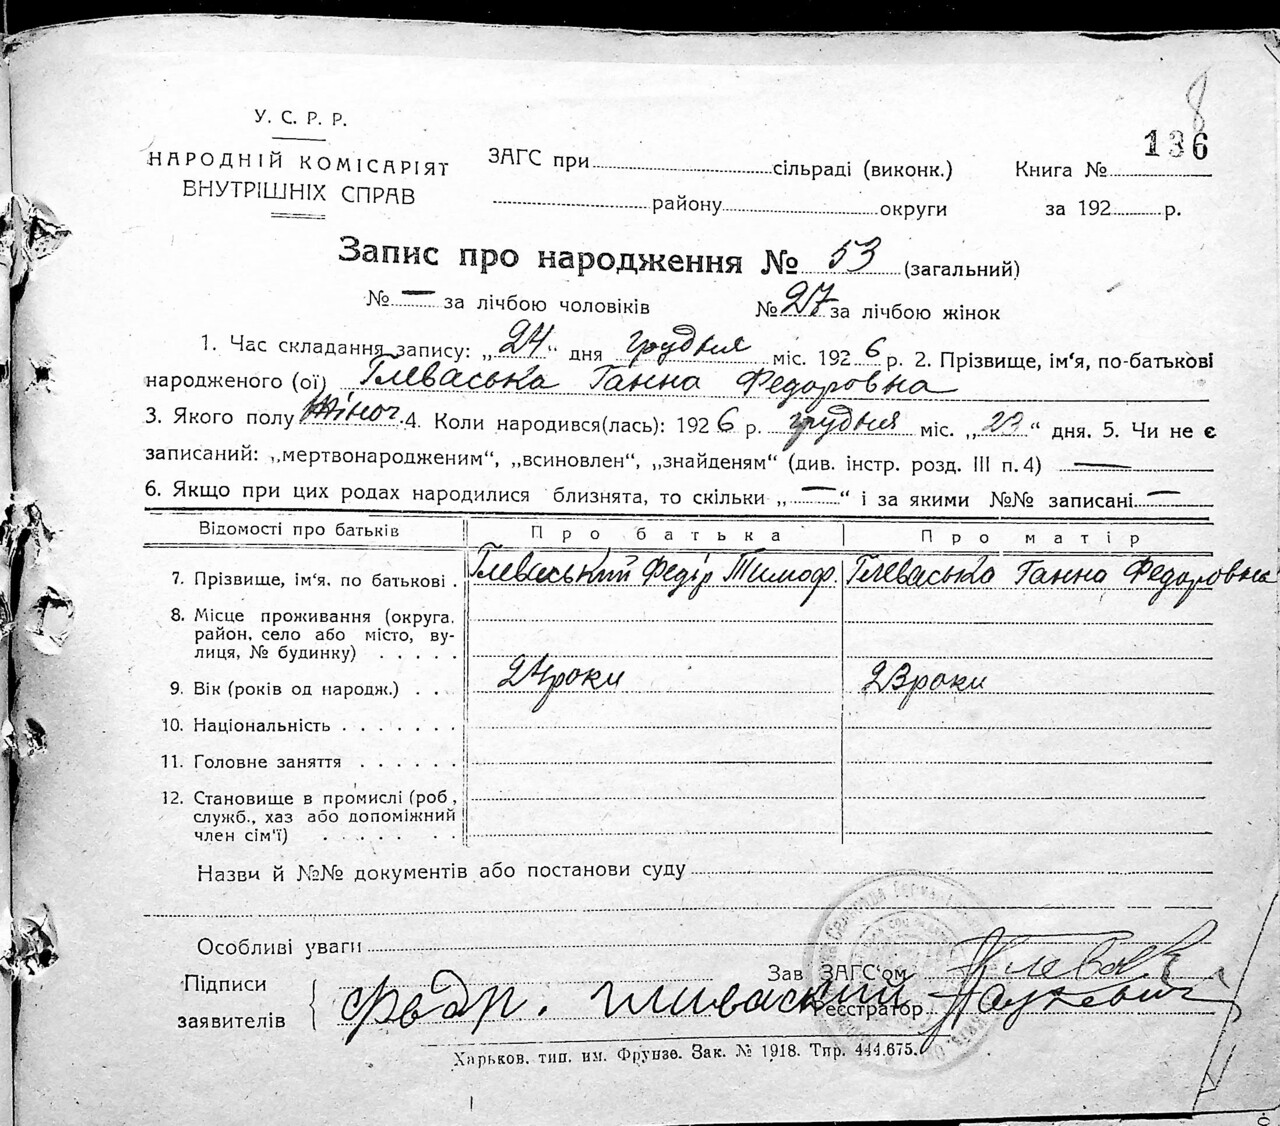 8
136
У. С. Р. Р.
НАРОДНІЙ КОМІСАРІЯТ
ВНУТРІШНІХ СПРАВ
ЗАГС при сільраді (виконк.)
району округи
Книга №
за 192 р.
Запис про народження № 53 (загальний)
№ — за лічбою чоловіків № 27 за лічбою жінок
1. Час складання запису: „24“ дня грудня міс. 1926 р. 2. Прізвище, ім‘я, по-батькові
народженого (ої) Глеваська Ганна Федоровна
3. Якого полу Жіноч. 4. Коли народився(лась): 1926 р. грудня міс. „23“ дня. 5. Чи не є
записаний: „мертвонародженим“, „всиновлен“, „знайденям“ (див. інстр. розд. III п. 4) —
6. Якщо при цих родах народилися близнята, то скільки „—“ і за якими №№ записані —
Відомості про батьків Про батька Про матір
7. Прізвище, ім‘я. по батькові . Глеваський Федір Тимоф. Глеваська Ганна Федоровна
8. Місце проживання (округа.
район, село або місто, ву-
лиця, № будинку) . . . . .
9. Вік (років од народж.) . . 24 роки 23 роки
10. Національність . . . . . . .
11. Головне заняття . . . . . .
12. Становище в промислі (роб.,
служб., хаз або допоміжний
член сім‘ї) . . . . . . .
Назви й №№ документів або постанови суду
Особливі уваги
Підписи
заявителів
Зав ЗАГС‘ом
Реєстратор
Харьков. тип. им. Фрунзе. Зак. № 1918. Тир. 444.675.